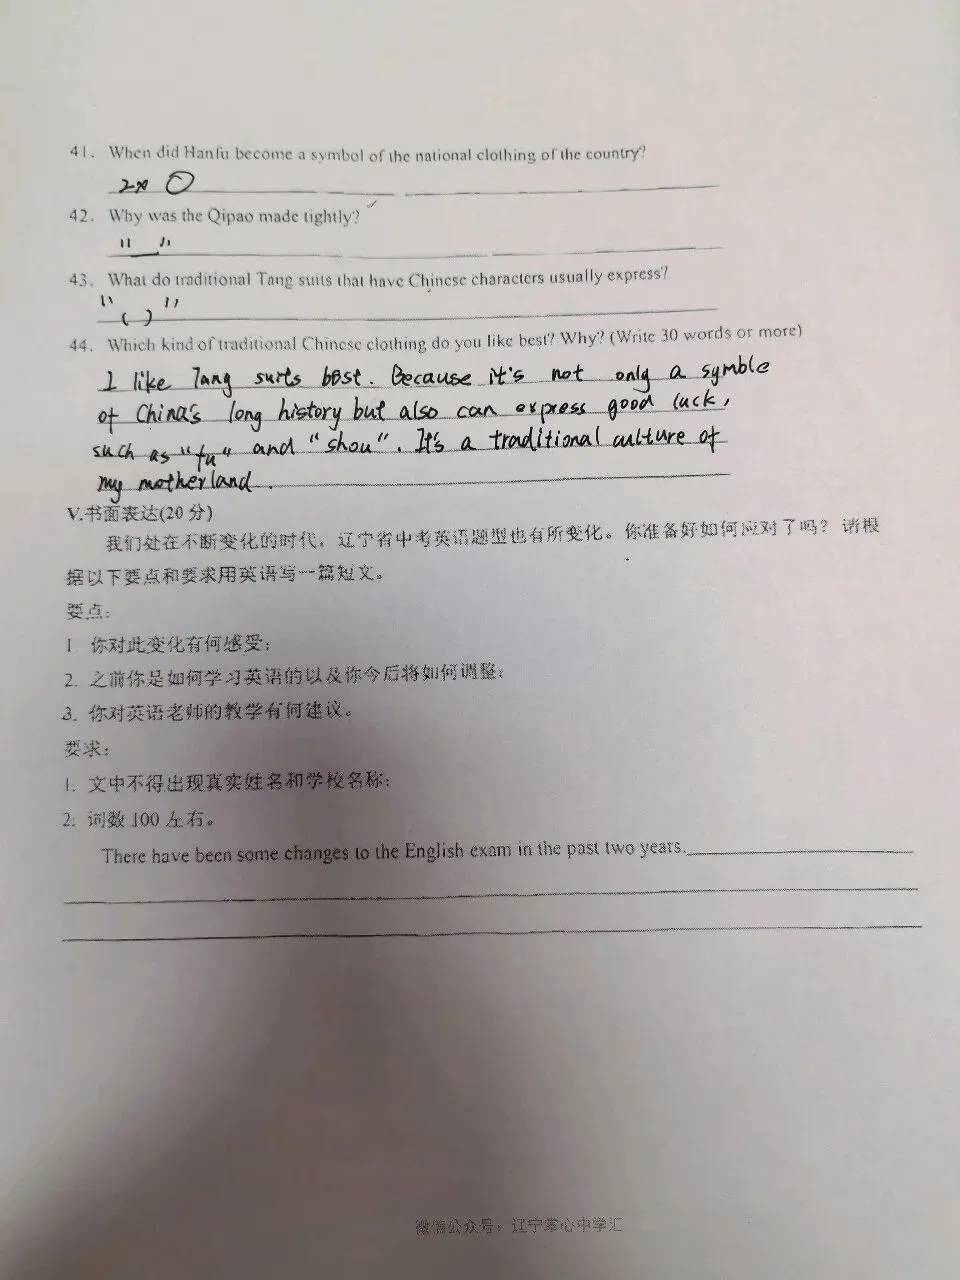 41. When did Hanfu become a symbol of the national clothing of the country?
42. Why was the Qipao made tightly?
" "
43. What do traditional Tang suits that have Chinese characters usually express?
" ( ) "
44. Which kind of traditional Chinese clothing do you like best? Why? (Write 30 words or more)
I like Tang suits best. Because it's not only a symble
of China's long history but also can express good luck,
such as "fu" and "shou". It's a traditional culture of
my motherland.
V.书面表达(20分)
我们处在不断变化的时代，辽宁省中考英语题型也有所变化。你准备好如何应对了吗？请根
据以下要点和要求用英语写一篇短文。
要点：
1 你对此变化有何感受；
2. 之前你是如何学习英语的以及你今后将如何调整；
3. 你对英语老师的教学有何建议。
要求：
1. 文中不得出现真实姓名和学校名称；
2. 词数100左右。
There have been some changes to the English exam in the past two years.
微信公众号：辽宁掌心中学汇